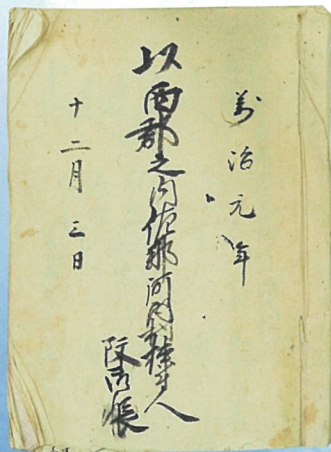 萬治元年
以西郡之内佐那河内村棟付人
改御帳
十二月三日